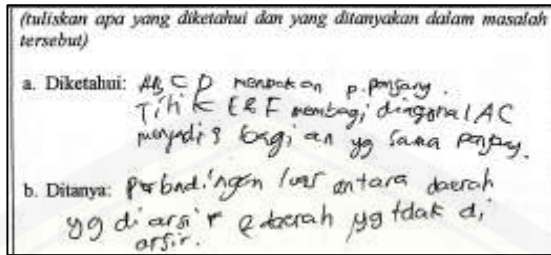 (tuliskan apa yang diketahui dan yang ditanyakan dalam masalah
tersebut)
a. Diketahui: ABCD merupakan p. panjang.
Titik E & F membagi diagonal AC
menjadi 3 bagian yg sama panjang.
b. Ditanya: Perbandingan luas antara daerah
yg di arsir & daerah yg tdak di
arsir.